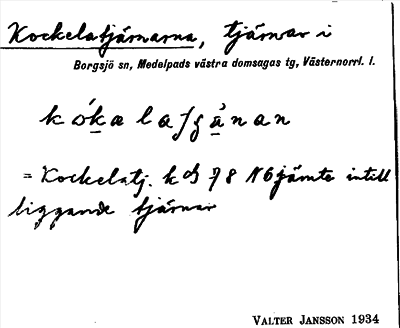 Kockelatjärnarna, tjärnar i
Borgsjö sn, Medelpads västra domsagas tg, Västernorrl. l.
kókalaʃgànan
= Kockelatj. k bl 78 NO jämte intill
liggande tjärnar
VALTER JANSSON 1934